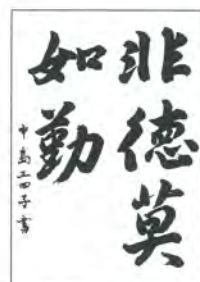 非德莫
如勤
中島工四子書